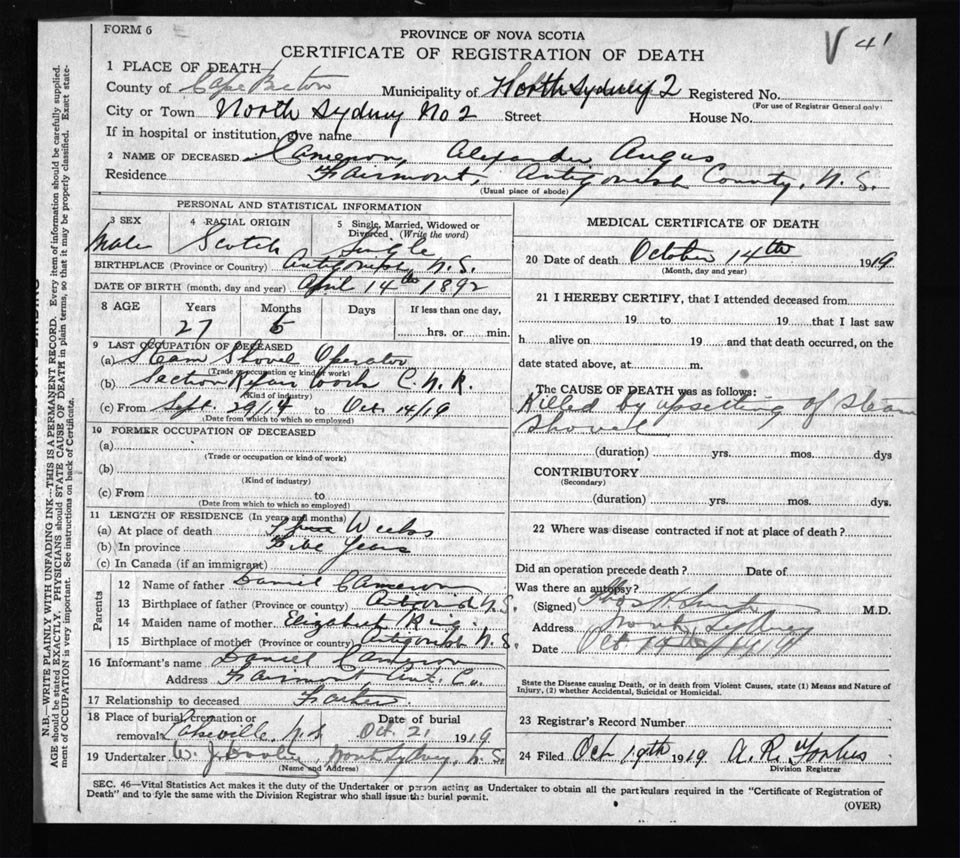 FORM 6
PROVINCE OF NOVA SCOTIA
CERTIFICATE OF REGISTRATION OF DEATH
V 41
1 PLACE OF DEATH
County of Cape Breton Municipality of North Sydney 2 Registered No.
(For use of Registrar General only)
City or Town North Sydney No 2 Street House No.
If in hospital or institution, give name
2 NAME OF DECEASED Cameron, Alexander Angus
Residence Fairmont, Antigonish County, N. S.
(Usual place of abode)
PERSONAL AND STATISTICAL INFORMATION
3 SEX 4 RACIAL ORIGIN 5 Single, Married, Widowed or Divorced (Write the word)
Male Scotch Single
BIRTHPLACE (Province or Country) Antigonish N.S.
DATE OF BIRTH (month, day and year) April 14th 1892
8 AGE Years Months Days If less than one day,
27 6 hrs. or min.
9 LAST OCCUPATION OF DECEASED
(a) Steam Shovel Operator
(Trade or occupation or kind of work)
(b) Section Repair work C. N. R.
(Kind of industry)
(c) From Sept. 29/19 to Oct 14/19
(Date from which to which so employed)
10 FORMER OCCUPATION OF DECEASED
(a)
(Trade or occupation or kind of work)
(b)
(Kind of industry)
(c) From to
(Date from which to which so employed)
11 LENGTH OF RESIDENCE (In years and months)
(a) At place of death Weeks
(b) In province Years
(c) In Canada (if an immigrant)
Parents
12 Name of father Daniel Cameron
13 Birthplace of father (Province or country) N.S.
14 Maiden name of mother Elizabeth King
15 Birthplace of mother (Province or country) Antigonish N.S.
16 Informant's name Daniel Cameron
Address Fairmont, Ant. Co.
17 Relationship to deceased Father
18 Place of burial, cremation or removal Lakeville, N.S Date of burial Oct. 21 1919
19 Undertaker W. J. North Sydney, N. S.
(Name and Address)
MEDICAL CERTIFICATE OF DEATH
20 Date of death October 14th 1919
(Month, day and year)
21 I HEREBY CERTIFY, that I attended deceased from
19 to 19 that I last saw
h alive on 19 and that death occurred, on the
date stated above, at m.
The CAUSE OF DEATH was as follows:
Killed by upsetting of steam
shovel
(duration) yrs. mos. dys
CONTRIBUTORY
(Secondary)
(duration) yrs. mos. dys.
22 Where was disease contracted if not at place of death?
Did an operation precede death? Date of
Was there an autopsy?
(Signed) M.D.
Address North Sydney
Date Oct. 14th/1919
State the Disease causing Death, or in death from Violent Causes, state (1) Means and Nature of
Injury, (2) whether Accidental, Suicidal or Homicidal.
23 Registrar's Record Number
24 Filed Oct 19th 1919 A. R. Forbes
Division Registrar
SEC. 46—Vital Statistics Act makes it the duty of the Undertaker or person acting as Undertaker to obtain all the particulars required in the "Certificate of Registration of
Death" and to fyle the same with the Division Registrar who shall issue the burial permit.
(OVER)
N.B.—WRITE PLAINLY WITH UNFADING INK—THIS IS A PERMANENT RECORD. Every item of information should be carefully supplied.
AGE should be stated EXACTLY. PHYSICIANS should STATE CAUSE OF DEATH in plain terms, so that it may be properly classified. Exact state-
ment of OCCUPATION is very important. See instructions on back of Certificate.